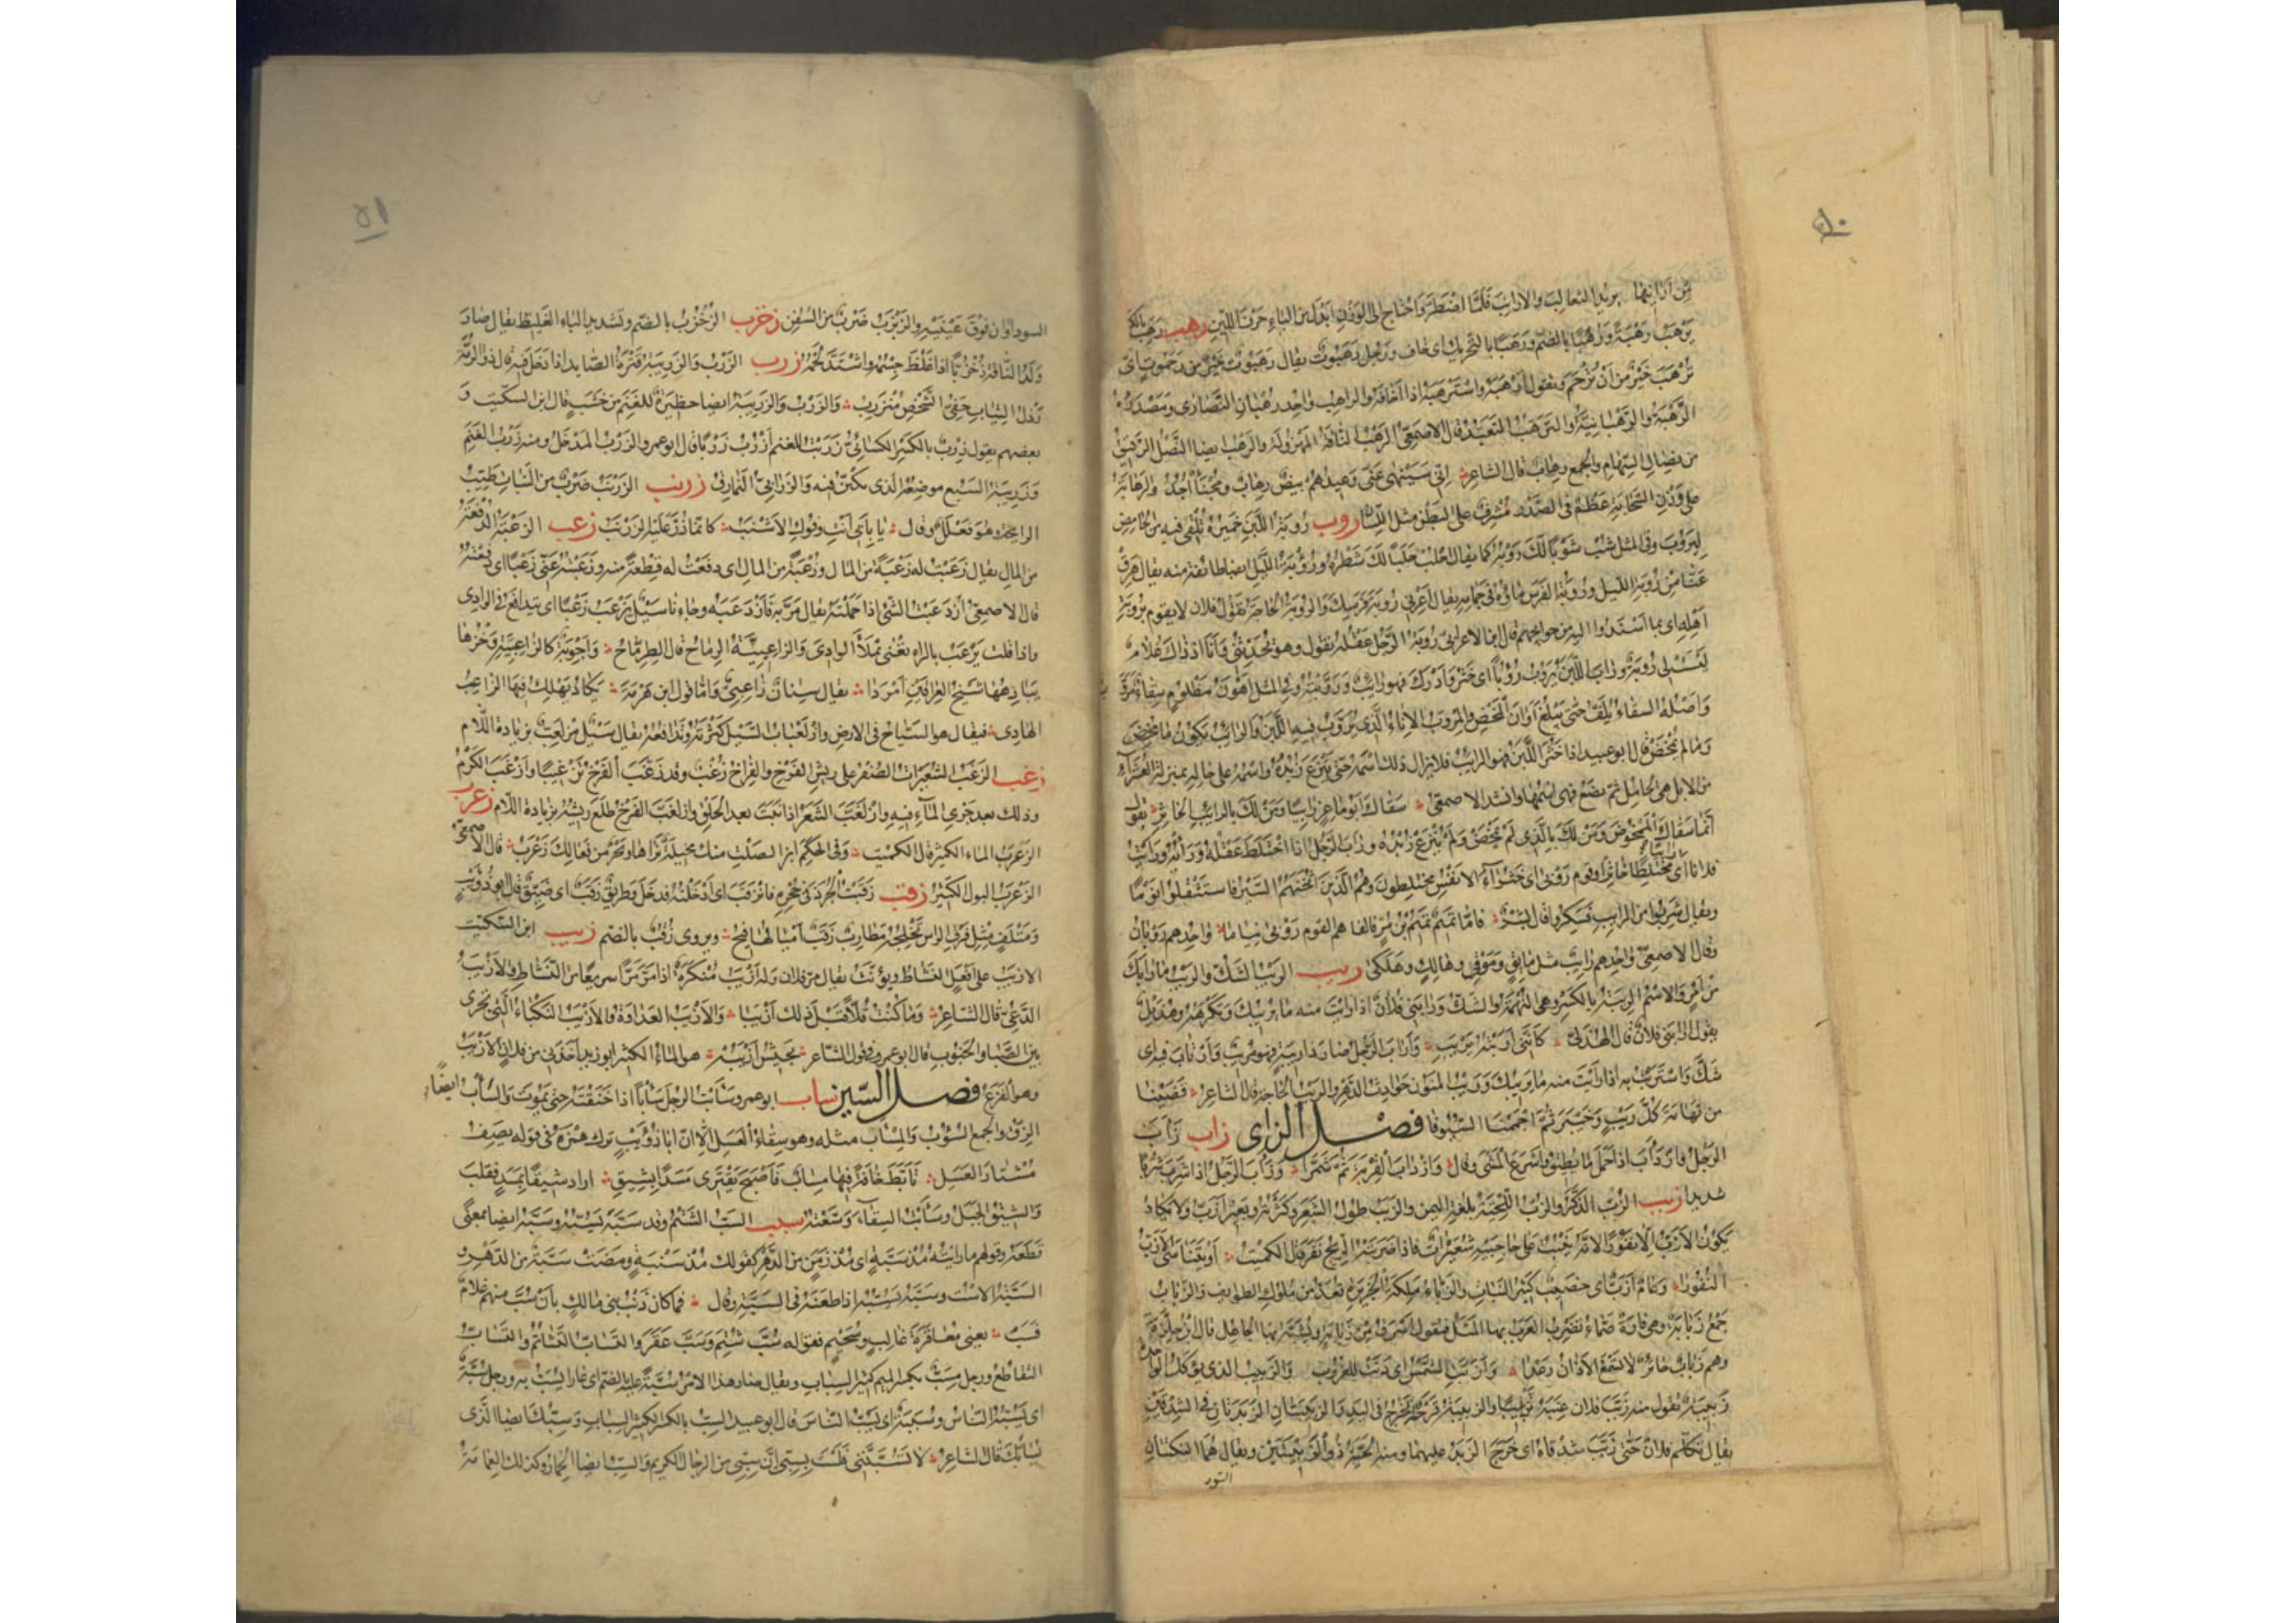 ٥٠
من ارانيها يريد الثعالب والارانب فلما اضطر واحتاج الى الوزن ابدل من الباء حرف اللين رهب رهب بالكسر
يرهب رهبة ورهبا بالضم ورهبا بالتحريك اى خاف ورجل رهبوت يقال رهبوت خير من رحموت اى
ترهب خير من ان ترحم وتقول ارهبه واسترهبه اذا اخافه والراهب واحد رهبان النصارى ومصدره
الرهبة والرهبانية والترهب التعبد قال الاصمعى الرهب الناقة المهزولة والرهب ايضا النصل الرقيق
من نصال السهام والجمع رهاب قال الشاعر انى سينهى عنى وعيدهم بيض رهاب ومجنأ اجد والرهابة
على وزن السحابة عظم فى الصدر مشرف على البطن مثل اللسان روب روبة اللبن خميرة تلقى فيه من الحامض
ليروب وفى المثل شب شوبا لك روبته كما يقال احلب حلبا لك شطره وروبة الليل ايضا طائفة منه يقال هرق
عنا من روبة الليل وروبة الفرس ماؤه فى جمامه يقال اعرنى روبة فرسك والروبة الحاجة تقول فلان لا يقوم بروبة
اهله اى بما اسندوا اليه من حوائجهم قال ابن الاعرابى روبة الرجل عقله تقول وهو يحدثنى وانا اذ ذاك غلام
ليست لى روبة وراب اللبن يروب روبا اى خثر وادرك فهو رائب وروبته وفى المثل اهون مظلوم سقاء مروب
واصله السقاء يلف حتى يبلغ اوان المخض والمروب الاناء الذى يروب فيه اللبن والرائب يكون ما مخض
وما لم يمخض قال ابو عبيد اذا خثر اللبن فهو الرائب فلا يزال ذلك اسمه حتى ينزع زبده واسمه على حاله بمنزلة العشراء
من الابل هى الحامل ثم تضع فهى اسمها وانشد الاصمعى سقاك ابو ماعز رائبا ومن لك بالرائب الخاثر يقول
انما سقاك الممخوض ومن لك بالذى لم يمخض ولم ينزع زبده وراب الرجل اذا اختلط عقله ورأيه ورأيت
فلانا رائبا اى مختلطا خاثرا وقوم روبى اى خثراء الانفس مختلطون وهم الذين اثخنهم السير فاستثقلوا نوما
ويقال شربوا من الرائب فسكروا قال بشر فاما تميم تميم بن مر فالفاهم القوم روبى نياما واحدهم روبان
وقال الاصمعى واحدهم رائب مثل مائق وموقى وهالك وهلكى ريب الريب الشك والريب ما رابك
من امر والاسم الريبة بالكسر وهى التهمة والشك ورابنى فلان اذا رأيت منه ما يريبك وتكرهه وهذيل
يقول ارابنى فلان قال الهذلى كأننى اربته بريب وأراب الرجل صار ذا ريبة فهو مريب وارتاب فيه اى
شك واستربت به اذا رأيت منه ما يريبك وريب المنون حوادث الدهر والريب الحاجة قال الشاعر قضينا
من تهامة كل ريب وخيبر ثم اجممنا السيوفا فصل الزاى زاب زأب
الرجل وازدأب اذا حمل ما يطيق واسرع المشى وقال وازدأب القربة ثم شمرا وزأب الرجل اذا شرب شربا
شديدا زبب الزب الذكر والزب اللحية بلغة اليمن والزبب طول الشعر وكثرته وبعير ازب ولا يكاد
يكون الازب الا نفورا لانه ينبت على حاجبيه شعيرات فاذا ضربته الريح نفر قال الكميت او يتناسى الازب
النفورا وعام ازب اى خصيب كثير النبات والزباء ملكة الجزيرة تعد من ملوك الطوائف والزباب
جمع زبابة وهى فأرة صماء تضرب العرب بها المثل فتقول اسرق من زبابة ويشبه بها الجاهل قال ابن حلزة
وهم زباب حائر لا تسمع الاذان رعدا وازبت الشمس اى دنت للغروب والزبيب الذى يؤكل الواحدة
زبيبة تقول منه زبب فلان عنبه تزبيبا والزبيبة قرحة تخرج فى اليد والزبيبتان الزبدتان فى الشدقين
يقال تكلم فلان حتى زبب شدقاه اى خرج الزبد عليهما ومنه الحية ذو الزبيبتين ويقال هما النكتتان
٥١
السوداوان فوق عينيه والزبزب ضرب من السفن زخزب الزخزب بالضم وتشديد الباء الغليظ يقال صار
ولد الناقة زخزبا اذا غلظ جسمه واشتد لحمه زرب الزرب والزريبة قترة الصائد اذا دخل فيها قال ذو الرمة
رذل الثياب خفى الشخص منزرب والزرب والزريبة ايضا حظيرة للغنم من خشب قال ابن السكيت و
بعضهم يقول زرب بالكسر الكسائى زربت للغنم ازرب زربا قال ابو عمرو الزرب المدخل ومنه زرب الغنم
وزريبة السبع موضعه الذى يكتن فيه والزرابى النمارق زرنب الزرنب ضرب من النبات طيب
الرائحة وهو فعلل وقال يا بأبى انت وفوك الاشنب كانما ذر عليه الزرنب زعب الزعبة الدفعة
من المال يقال زعبت له زعبة من المال وزعبة من المال اى دفعت له قطعة منه وزعبته عنى زعبا اى دفعته
قال الاصمعى ازدعبت الشىء اذا حملته يقال مر به فازدعبه وجاءنا سيل يزعب زعبا اى يتدافع فى الوادى
واذا قلت يرعب بالراء تعنى يملأ الوادى والزاعبية الرماح قال الطرماح واجوبة كالزاعبية وخزها
يبادهها شيخ العراقين امردا يقال سنان زاعبى واما قول ابن هرمة يكاد يهلك فيها الزاعب
الهادى فيقال هو السياح فى الارض وازلعباب السيل كثرته وتدافعه يقال سيل مزلعب بزيادة اللام
زغب الزغب الشعيرات الصفر على ريش الفرخ والفراخ زغب وقد زغب الفرخ تزغيبا وازغب الكرم
وذلك بعد جرى الماء فيه وازلغب الشعر اذا نبت بعد الحلق وازلغب الفرخ طلع ريشه بزيادة اللام زغرب
الزغرب الماء الكثير قال الكميت وفى الحكم ابن الصلت منك مخيلة نراها وبحر من فعالك زغرب قال الاصمعى
الزغرب البول الكثير زقب زقبت الجرذ فى جحره فانزقب اى ادخلته فدخل وطريق زقب اى ضيق قال ابو ذؤيب
ومتلف مثل فرق الرأس تخلجه مطارب زقب اميالها فيح ويروى زقب بالضم زيب ابن السكيت
الازيب على افعل النشاط ويؤنث يقال مر فلان وله ازيب منكرة اذا مر مرا سريعا من النشاط والازيب
الدعى قال الشاعر وما كنت قلا قبل ذلك ازيبا والازيب العداوة والازيب النكباء التى تجرى
بين الصبا والجنوب قال ابو عمرو فى قول الشاعر بجيش ازيبه هو الماء الكثير ابو زيد اخذنى من فلان الازيب
وهو الفزع فصل السين ساب ابو عمرو سأبت الرجل سأبا اذا خنقته حتى يموت والسأب ايضا
الزق والجمع السؤوب والمسأب مثله وهو سقاء العسل الا ان ابا ذؤيب ترك همزه فى قوله يصف
مشتار العسل تأبط خافة فيها مساب فاصبح يقترى مسدا بشيق اراد شيقا بمسد فقلب
والشيق الجبل وسأبت السقاء وسعته سبب السب الشتم وقد سبه يسبه وسبه ايضا بمعنى
قطعه وقولهم ما رأيته مذ سبة اى مذ زمن من الدهر كقولك مذ سنبة ومضت سبة من الدهر و
السبة الاست وسبه يسبه اذا طعنه فى السبة وقال فما كان ذنب بنى مالك بان سب منهم غلام
فسب يعنى معاقرة غالب وسحيم فقوله سب شتم وسب عقر والتساب التشاتم والتساب
التقاطع ورجل مسب بكسر الميم كثير السباب ويقال صار هذا الامر سبة عليه بالضم اى عارا يسب به ورجل سبة
اى يسبه الناس وسببة اى يسب الناس قال ابو عبيد السب بالكسر الكثير السباب وسبك ايضا الذى
يسابك قال الشاعر لا تسبننى فلست بسبى ان سبى من الرجال الكريم والسب ايضا الخمار وكذلك العمامة